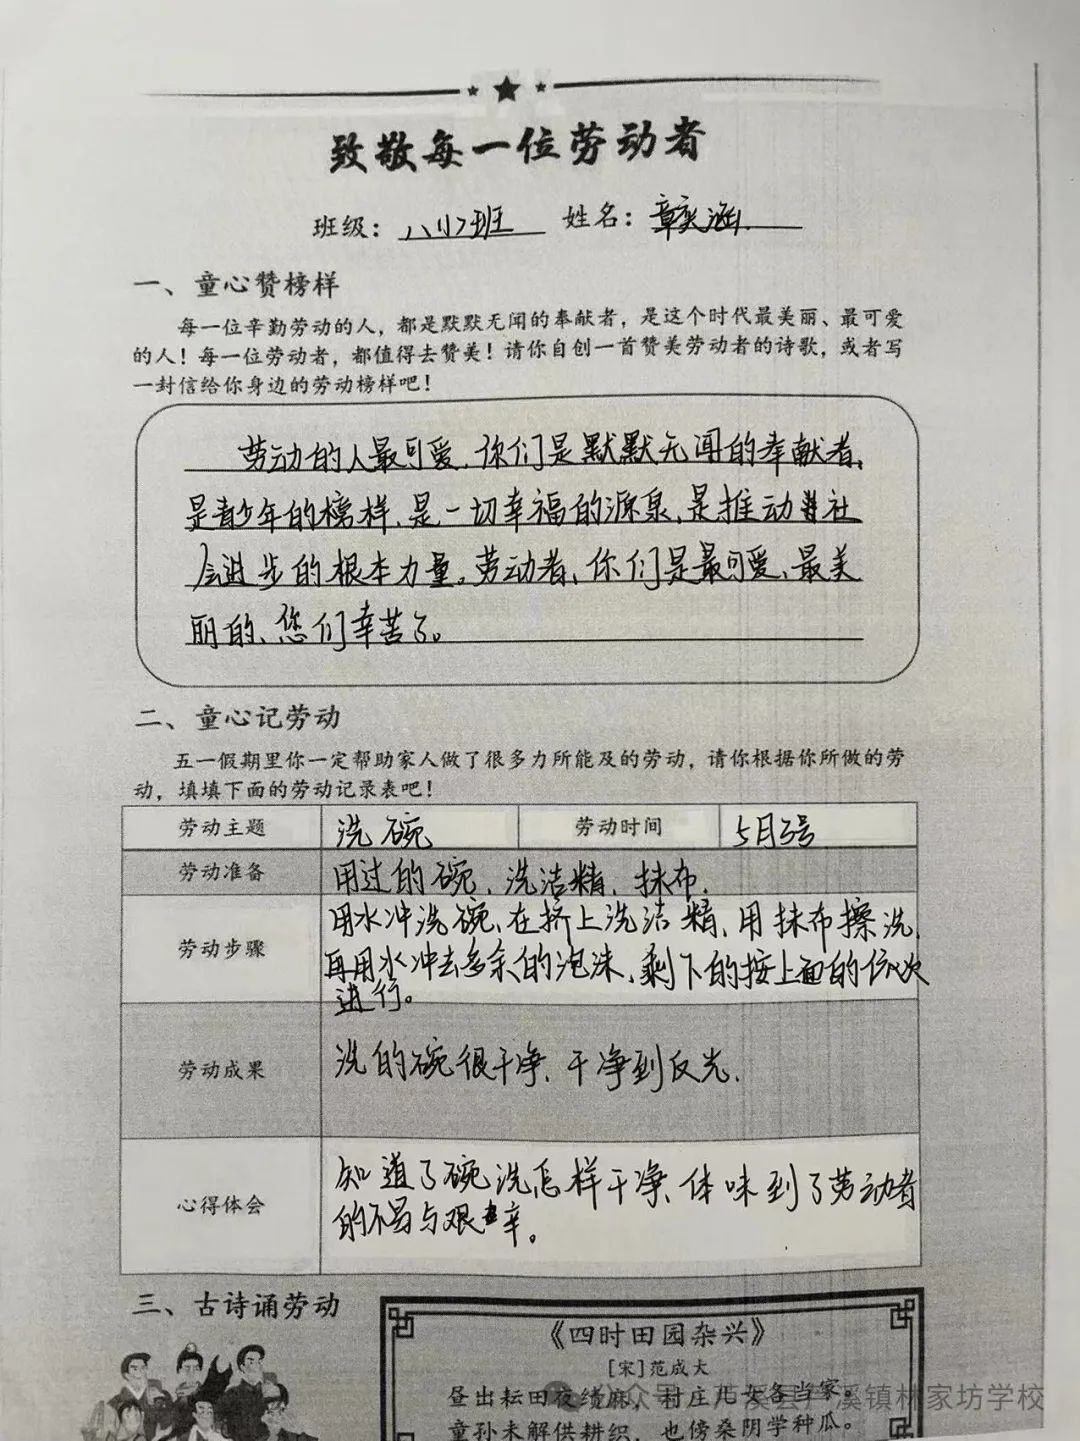 致敬每一位劳动者
班级：八(1)班 姓名：章奕涵
一、童心赞榜样
每一位辛勤劳动的人，都是默默无闻的奉献者，是这个时代最美丽、最可爱
的人！每一位劳动者，都值得去赞美！请你自创一首赞美劳动者的诗歌，或者写
一封信给你身边的劳动榜样吧！
劳动的人最可爱，你们是默默无闻的奉献者，
是青少年的榜样，是一切幸福的源泉，是推动社
会进步的根本力量。劳动者，你们是最可爱、最美
丽的、您们幸苦了。
二、童心记劳动
五一假期里你一定帮助家人做了很多力所能及的劳动，请你根据你所做的劳
动，填填下面的劳动记录表吧！
劳动主题 洗碗 劳动时间 5月3号
劳动准备 用过的碗、洗洁精、抹布.
劳动步骤 用水冲洗碗、在挤上洗洁精，用抹布擦洗，
再用水冲去多余的泡沫，剩下的按上面的依次
进行。
劳动成果 洗的碗很干净，干净到反光.
心得体会 知道了碗洗怎样干净、体味到了劳动者
的不易与艰辛。
三、古诗诵劳动
《四时田园杂兴》
[宋]范成大
昼出耘田夜绩麻，村庄儿女各当家。
童孙未解供耕织，也傍桑阴学种瓜。
公众号·芦溪县芦溪镇林家坊学校